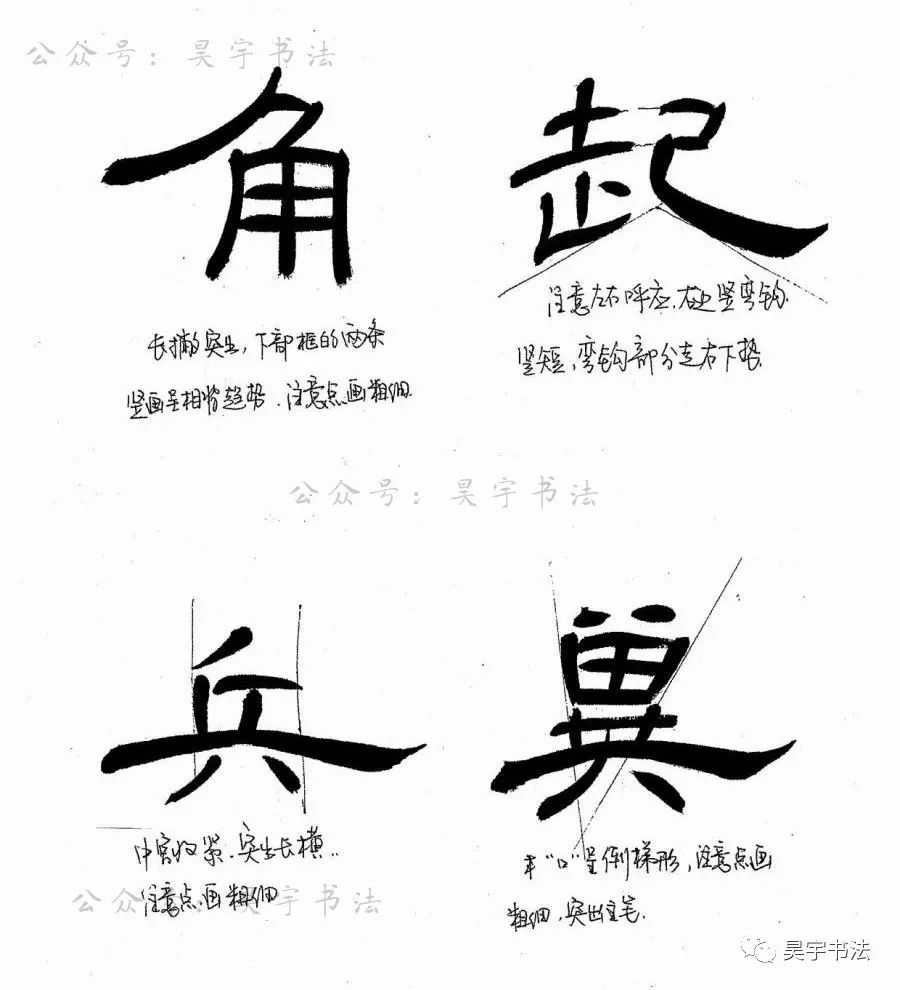 公众号：昊宇书法
角 起
长撇突出，下部框的两条
竖画呈相背趋势．注意点画粗细．
注意左右呼应，右边竖弯钩．
竖短，弯钩部分走右下势．
公众号：昊宇书法
兵 冀
中宫收紧．突出长横．
注意点画粗细
公众号：昊宇书法
"口"呈倒梯形，注意点画
粗细，突出主笔．
昊宇书法